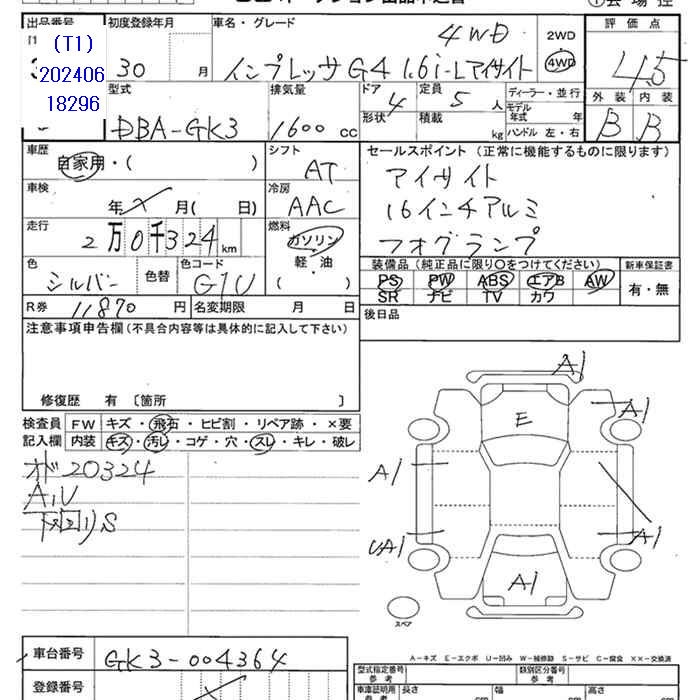 ① 会場控
出品番号 初度登録年月 車名・グレード 評価点
(T1)
202406
18296
30 月 インプレッサG4 1.6i-Lアイサイト 4WD
2WD
4WD
4.5
型式 排気量 ドア 定員 ディーラー・並行 外装 内装
DBA-GK3 1600 cc 4 5 人 モデル年式 年
形状 積載 kg ハンドル 左・右 B B
車歴 自家用・( ) シフト AT
セールスポイント (正常に機能するものに限ります)
アイサイト
16インチアルミ
フォグランプ
車検 年 月( 日) 冷房 AAC
走行 2万0千324km 燃料 ガソリン 軽・油 ( )
色 シルバー 色替 色コード G1U
装備品 (純正品に限り〇をつけてください) 新車保証書
PS PW ABS エアB AW 有・無
SR ナビ TV カワ
R券 11870 円 名変期限 月 日
後日品
注意事項申告欄 (不具合内容等は具体的に記入して下さい)
修復歴 有 〔箇所 〕
検査員 FW キズ・飛石・ヒビ割・リペア跡・×要
記入欄 内装 キズ・汚レ・コゲ・穴・スレ・キレ・破レ
オド20324
A,U
下回りS
A1
A1
E
A1
A1
UA1
A1
スペア
A-キズ E-エクボ U-凹み W-補修跡 S-サビ C-腐食 XX-交換済
車台番号 GK3-004364
登録番号
型式指定番号 参考 類別区分番号 参考
車庫証明用 参考 長さ cm 幅 cm 高さ cm